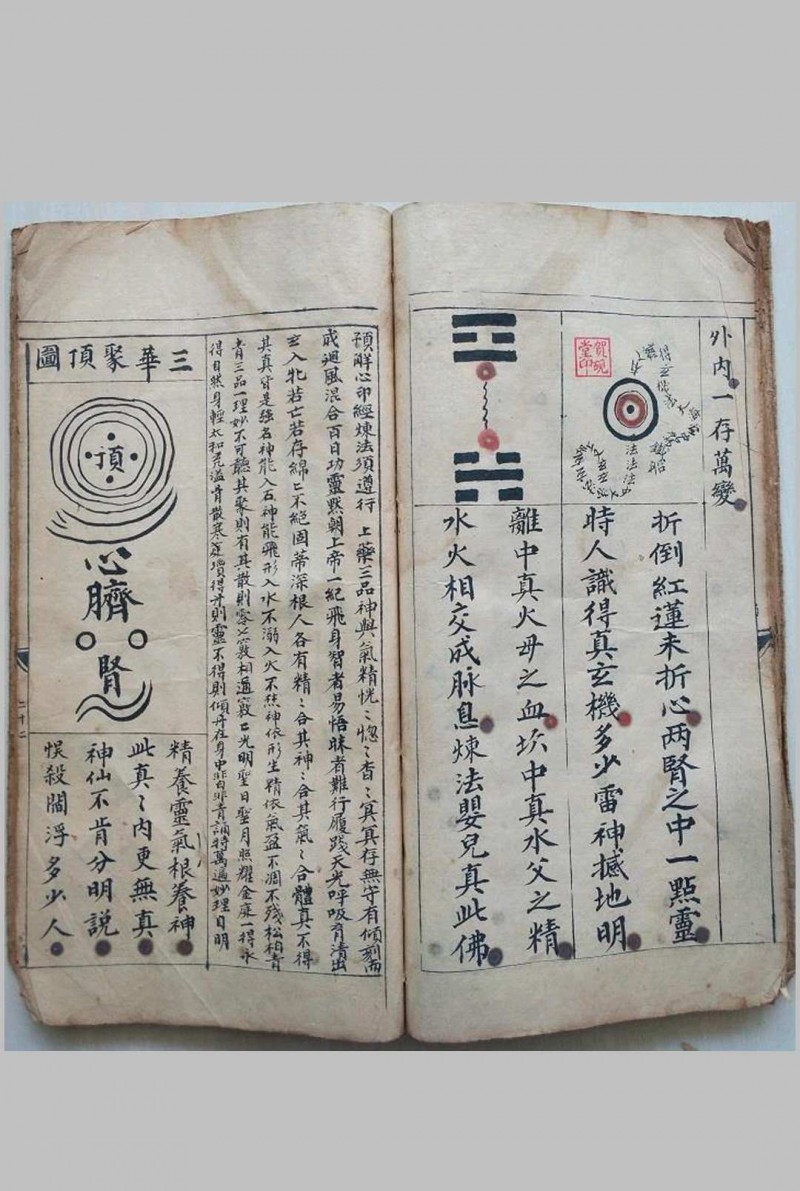 外内一存萬變
折倒紅蓮未折心兩腎之中一點靈
時人識得真玄機多少雷神撼地明
離中真火母之血坎中真水父之精
水火相交成脉息煉法嬰兒真此佛
賀硯
堂印
法法法
預解心印經煉法須遵行 上藥三品神與氣精恍〻惚〻杳〻冥冥存無守有傾刻而
成廻風混合百日功靈默朝上帝一紀飛身智者易悟昧者難行履踐天光呼吸育清出
玄入牝若亡若存綿〻不絕固蒂深根人各有精〻合其神〻合其氣〻合體真不得
其真皆是強名神能入石神能飛形入水不溺入火不焚神依形生精依氣盈不凋不殘松柏青
青三品一理妙不可聽其聚則有其散則零七竅相通竅〻光明聖日聖月照耀金庭一得永
得自然身輕太和充溢骨散寒瓊得丹則靈不得則傾丹在身中非白非青誦持萬遍妙理自明
三華聚頂圖
頂
心
臍
腎
精養靈氣根養神
此真〻內更無真
神仙不肯分明說
悞殺閻浮多少人
二十二